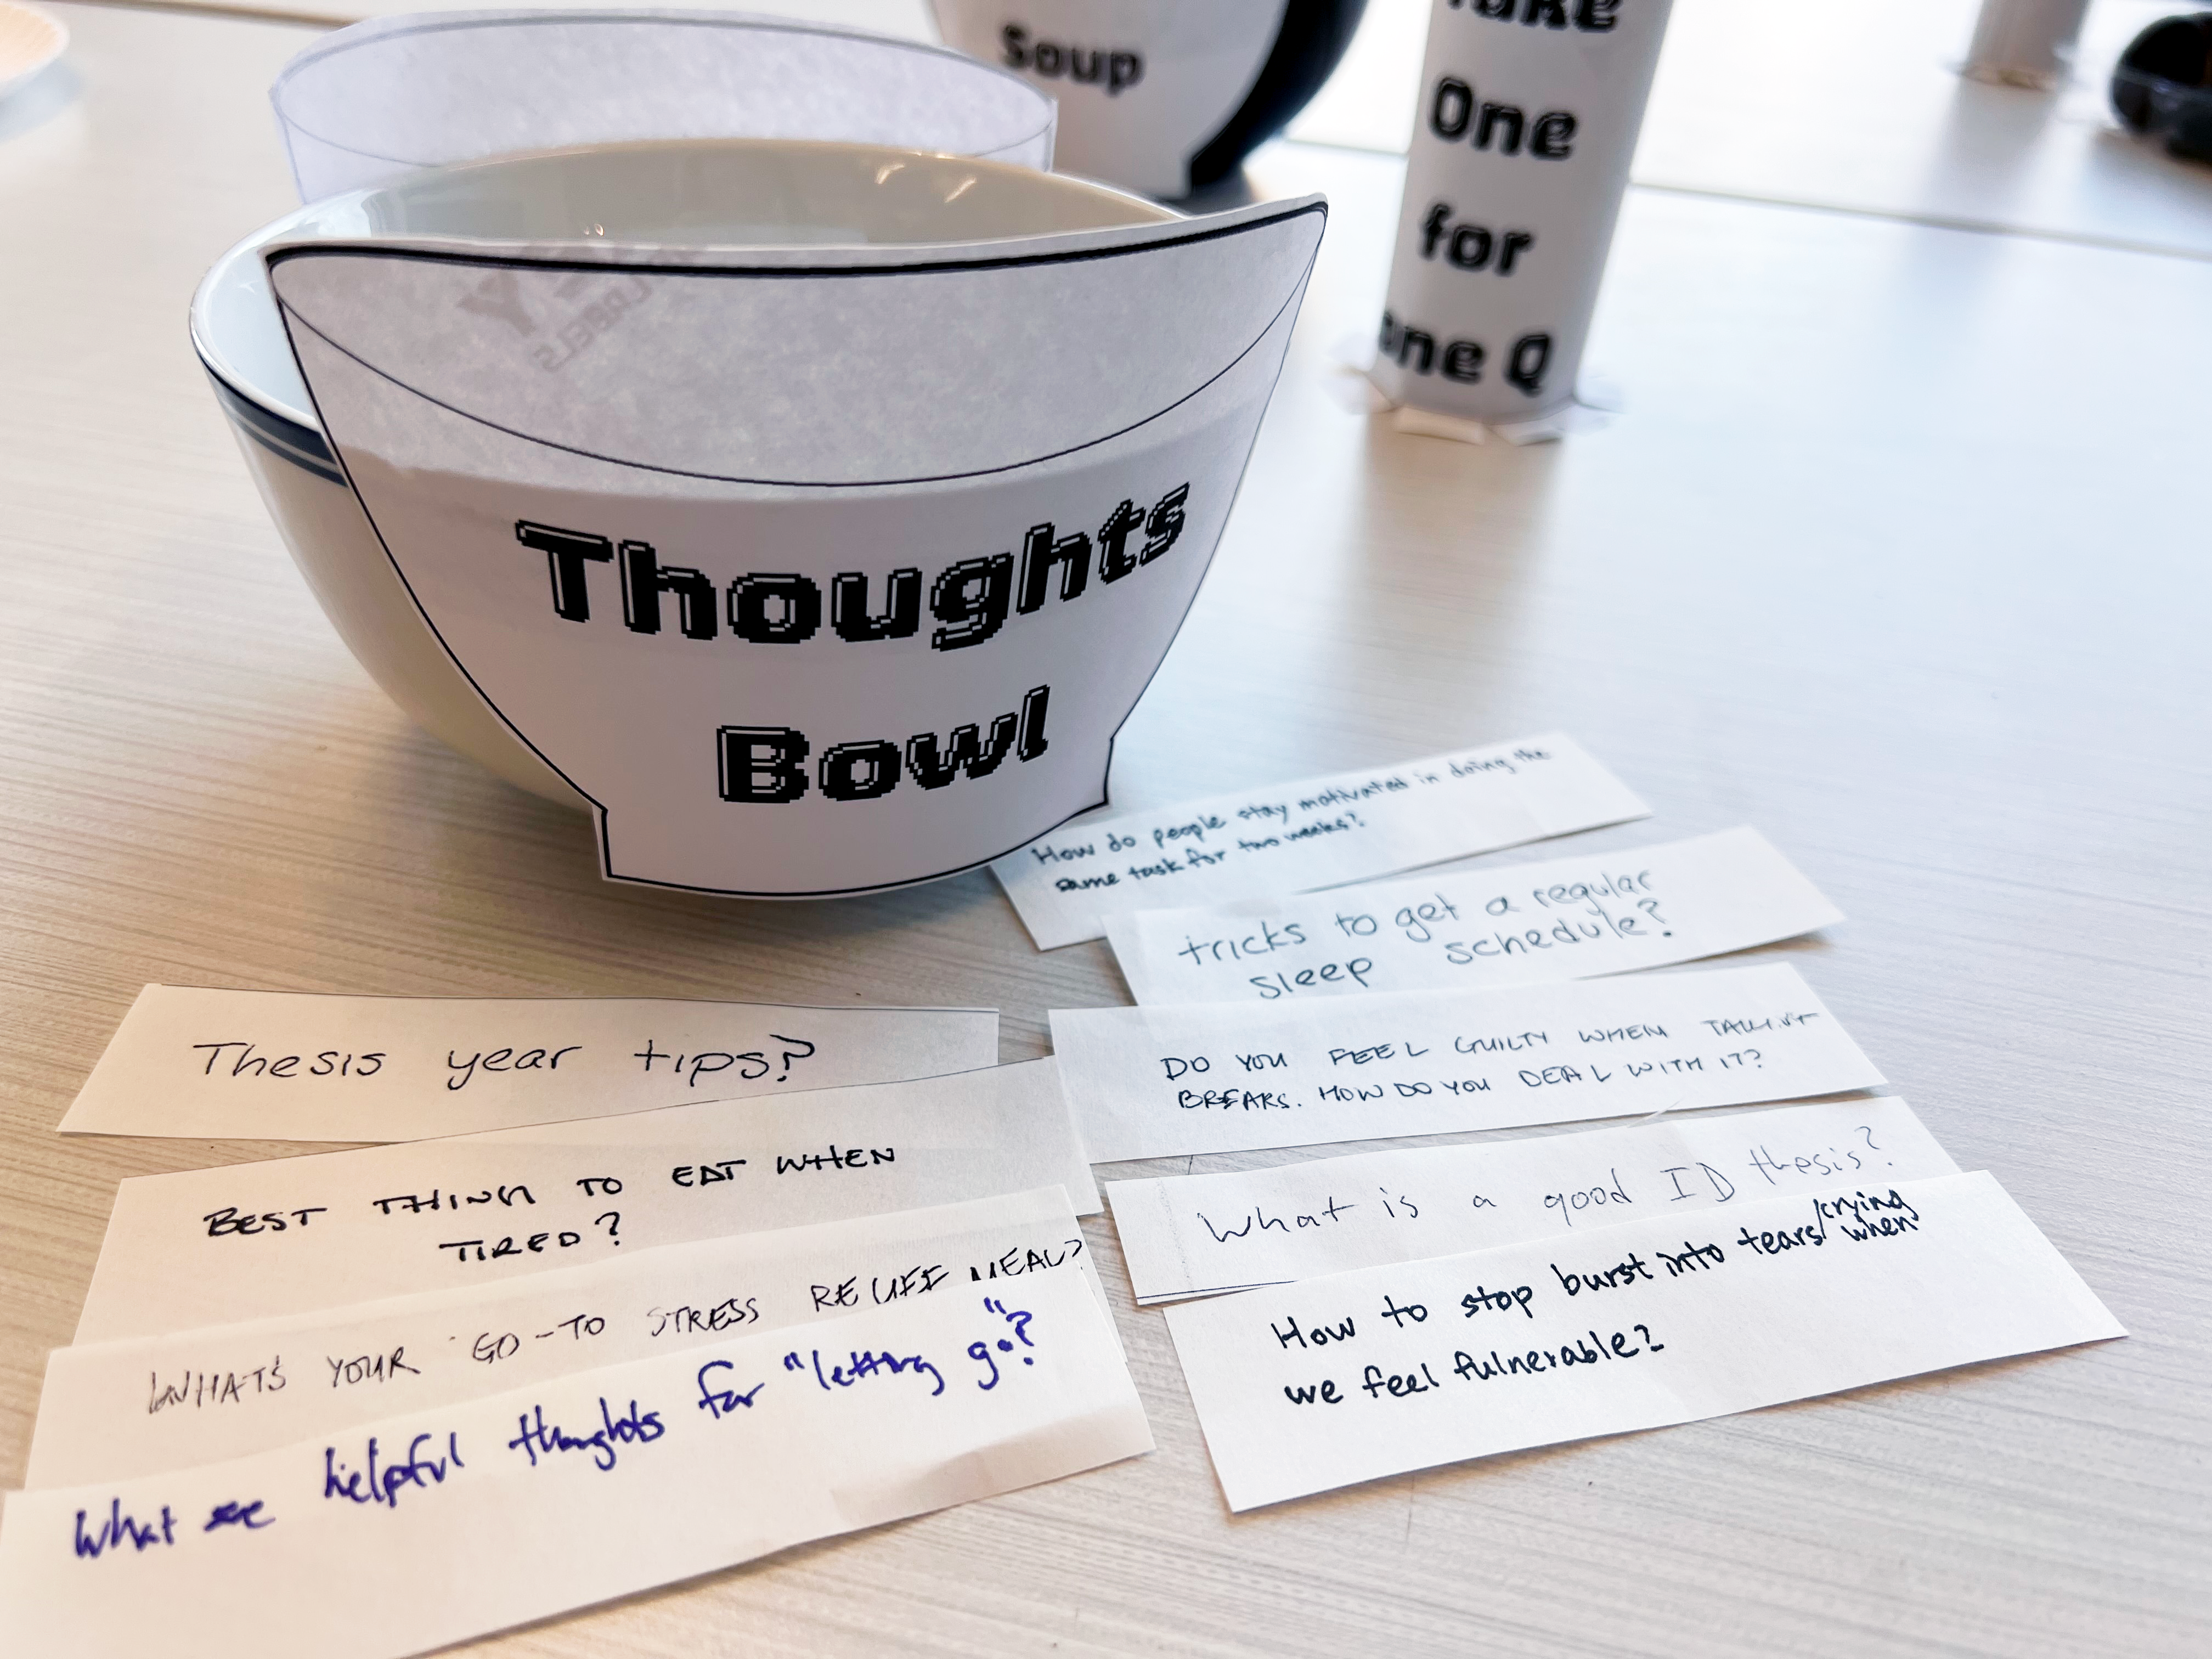 Soup
Take
One
for
one Q
Thoughts
Bowl
How do people stay motivated in doing the
same task for two weeks?
tricks to get a regular
sleep schedule?
DO YOU FEEL GUILTY WHEN
BREAKS. HOW DO YOU DEAL WITH IT?
What is a good ID thesis?
How to stop burst into tears/crying when
we feel fulnerable?
Thesis year tips?
BEST THING TO EAT WHEN
TIRED?
WHAT'S YOUR GO-TO STRESS RELIEF MEAL?
What are helpful thoughts for "letting go"?